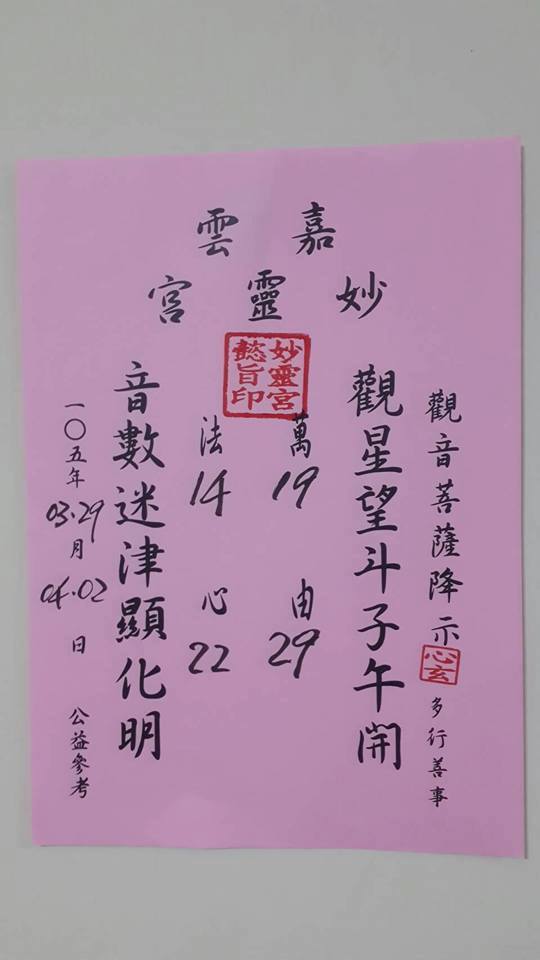 嘉雲
妙靈宮
妙靈宮
懿旨印
觀音菩薩降示 心玄 多行善事
觀星望斗子午開
萬 19 由 29
法 14 心 22
音數迷津顯化明
一〇五年 03.29 月 04.02 日 公益參考